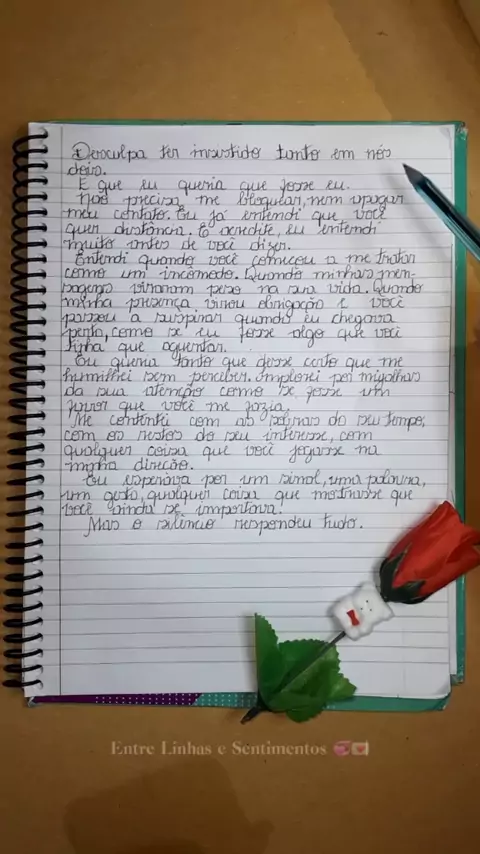 Desculpa ter insistido tanto em nós
dois.
E que eu queria que fosse eu.
Não precisa me bloquear, nem apagar
meu contato. Eu já entendi que você
quer distância. E acredite, eu entendi
muito antes de você dizer.
Entendi quando você começou a me tratar
como um incômodo. Quando minhas men-
sagens viraram peso na sua vida. Quando
minha presença virou obrigação e você
passou a suspirar quando eu chegava
perto, como se eu fosse algo que você
tinha que aguentar.
Eu queria tanto que desse certo que me
humilhei sem perceber. Implorei por migalhas
da sua atenção como se fosse um
favor que você me fazia.
Me contentei com as sobras do seu tempo,
com os restos do seu interesse, com
qualquer coisa que você jogasse na
minha direção.
Eu esperava por um sinal, uma palavra,
um gesto, qualquer coisa que mostrasse que
você ainda se importava!
Mas o silêncio respondeu tudo.
Entre Linhas e Sentimentos 💞💌